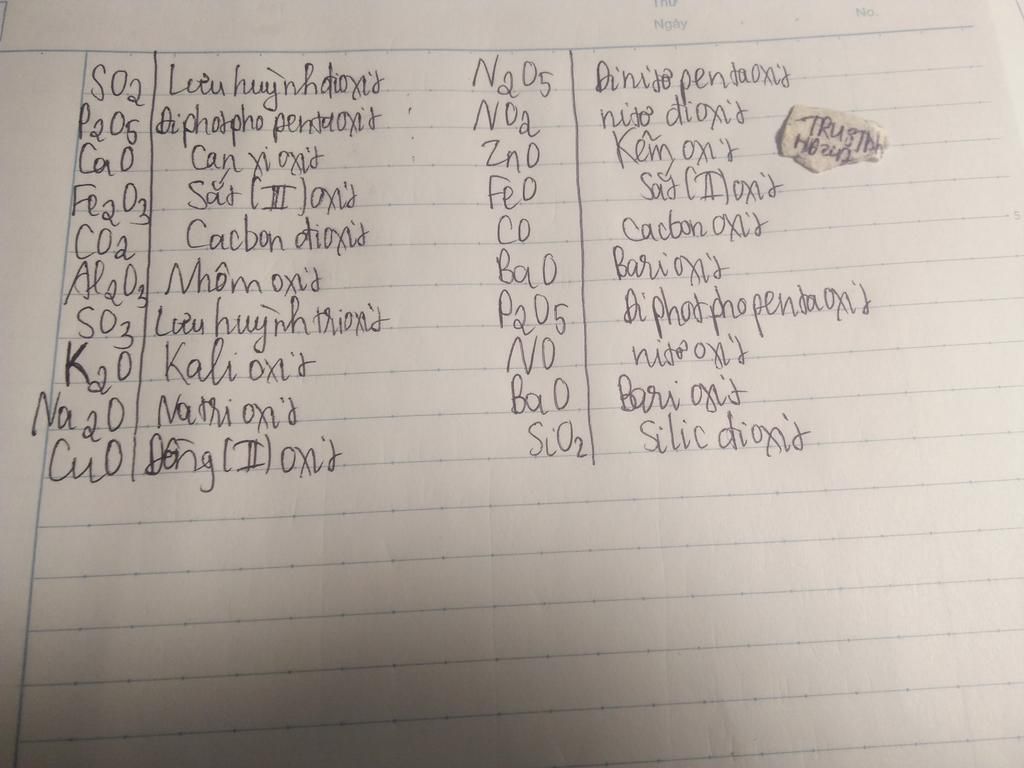 Thứ
Ngày No.
SO2 Lưu huỳnh đioxit N2O5 Đinitơ pentaoxit
P2O5 Điphotpho pentaoxit NO2 nitơ đioxit
CaO Canxi oxit ZnO Kẽm oxit
Fe2O3 Sắt (III) oxit FeO Sắt (II) oxit
CO2 Cacbon đioxit CO cacbon oxit
Al2O3 Nhôm oxit BaO Bari oxit
SO3 Lưu huỳnh trioxit P2O5 Điphotpho pentaoxit
K2O Kali oxit NO nitơ oxit
Na2O Natri oxit BaO Bari oxit
CuO Đồng (II) oxit SiO2 Silic đioxit